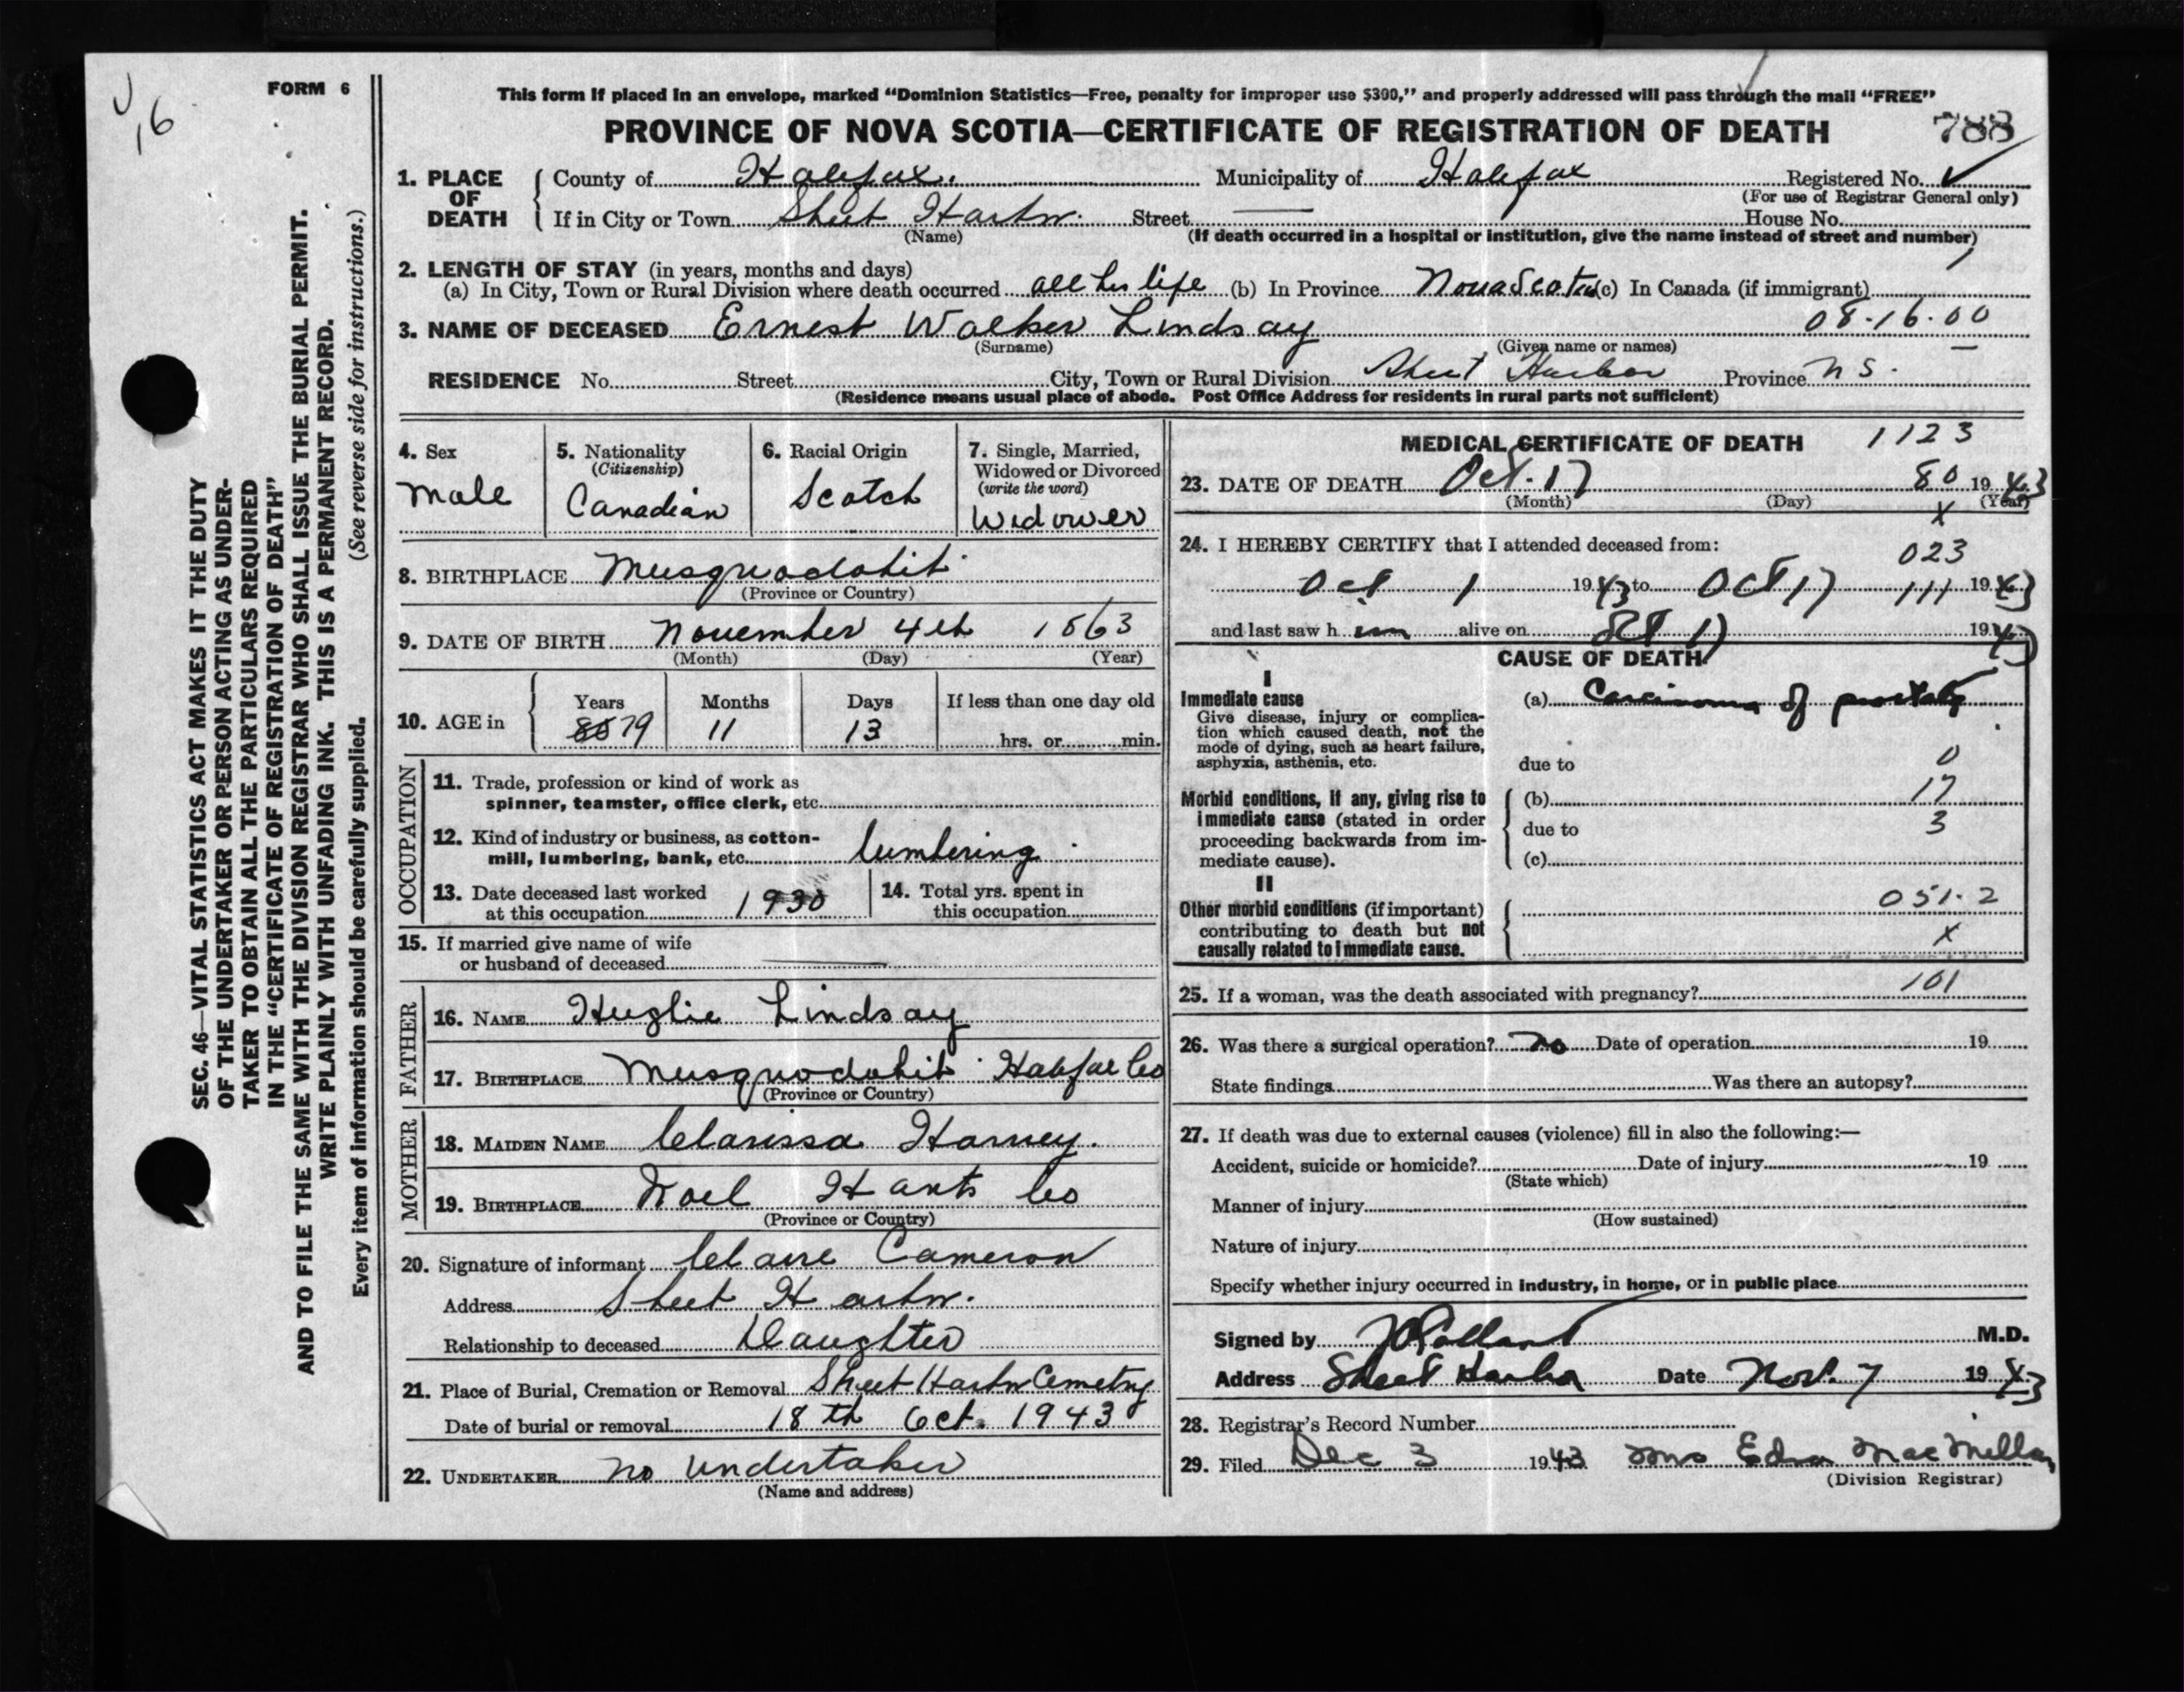 FORM 6
16
This form if placed in an envelope, marked “Dominion Statistics—Free, penalty for improper use $300,” and properly addressed will pass through the mail “FREE”
PROVINCE OF NOVA SCOTIA—CERTIFICATE OF REGISTRATION OF DEATH 788
1. PLACE OF DEATH
County of Halifax. Municipality of Halifax Registered No.
(For use of Registrar General only)
If in City or Town Sheet Harbor. Street — House No.
(Name) (If death occurred in a hospital or institution, give the name instead of street and number)
2. LENGTH OF STAY (in years, months and days)
(a) In City, Town or Rural Division where death occurred all his life (b) In Province Nova Scotia (c) In Canada (if immigrant)
3. NAME OF DECEASED Ernest Walker Lindsay 08-16-00
(Surname) (Given name or names)
RESIDENCE No. Street City, Town or Rural Division Sheet Harbor Province N S.
(Residence means usual place of abode. Post Office Address for residents in rural parts not sufficient)
4. Sex
Male
5. Nationality
(Citizenship)
Canadian
6. Racial Origin
Scotch
7. Single, Married,
Widowed or Divorced
(write the word)
Widower
8. BIRTHPLACE Musquodobit
(Province or Country)
9. DATE OF BIRTH November 4th 1863
(Month) (Day) (Year)
10. AGE in
Years Months Days If less than one day old
80 79 11 13 hrs. or min.
OCCUPATION
11. Trade, profession or kind of work as
spinner, teamster, office clerk, etc.
12. Kind of industry or business, as cotton-
mill, lumbering, bank, etc. lumbering
13. Date deceased last worked
at this occupation 1930
14. Total yrs. spent in
this occupation
15. If married give name of wife
or husband of deceased —
FATHER
16. NAME Hughie Lindsay
17. BIRTHPLACE Musquodobit Halifax Co
(Province or Country)
MOTHER
18. MAIDEN NAME Clarissa Harvey.
19. BIRTHPLACE Noel Hants Co
(Province or Country)
20. Signature of informant Claire Cameron
Address Sheet Harbor.
Relationship to deceased Daughter
21. Place of Burial, Cremation or Removal Sheet Harbor Cemetry
Date of burial or removal 18th Oct. 1943
22. UNDERTAKER no undertaker
(Name and address)
MEDICAL CERTIFICATE OF DEATH 1123
23. DATE OF DEATH Oct. 17 80 1943
(Month) (Day) (Year)
x
24. I HEREBY CERTIFY that I attended deceased from:
023
Oct 1 1943 to Oct 17 111 1943
and last saw him alive on Oct 17 1943
CAUSE OF DEATH
I
Immediate cause
Give disease, injury or complica-
tion which caused death, not the
mode of dying, such as heart failure,
asphyxia, asthenia, etc.
(a) Carcinoma of prostate
due to 0
Morbid conditions, if any, giving rise to
immediate cause (stated in order
proceeding backwards from im-
mediate cause).
(b) 17
due to 3
(c)
II
Other morbid conditions (if important)
contributing to death but not
causally related to immediate cause.
051-2
x
25. If a woman, was the death associated with pregnancy? 101
26. Was there a surgical operation? No Date of operation 19
State findings Was there an autopsy?
27. If death was due to external causes (violence) fill in also the following:—
Accident, suicide or homicide? Date of injury 19
(State which)
Manner of injury
(How sustained)
Nature of injury
Specify whether injury occurred in industry, in home, or in public place
Signed by M.D.
Address Sheet Harbor Date Nov. 7 1943
28. Registrar's Record Number
29. Filed Dec 3 1943 Mrs Edna MacMillan
(Division Registrar)
SEC. 46—VITAL STATISTICS ACT MAKES IT THE DUTY
OF THE UNDERTAKER OR PERSON ACTING AS UNDER-
TAKER TO OBTAIN ALL THE PARTICULARS REQUIRED
IN THE “CERTIFICATE OF REGISTRATION OF DEATH”
AND TO FILE THE SAME WITH THE DIVISION REGISTRAR WHO SHALL ISSUE THE BURIAL PERMIT.
WRITE PLAINLY WITH UNFADING INK. THIS IS A PERMANENT RECORD.
Every item of information should be carefully supplied. (See reverse side for instructions.)